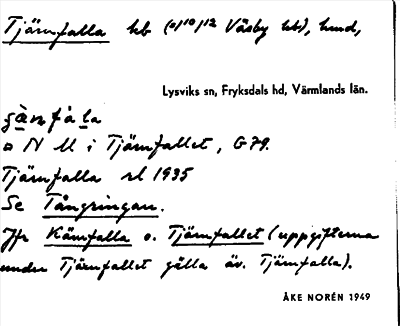 Tjärnfalla hb (o/10/12 Väsby hb), hmd,
Lysviks sn, Fryksdals hd, Värmlands län.
¤ N U i Tjärnfallet, G79.
Tjärnfalla rl 1935
Se Tångringan.
Jfr Kärnfalla o. Tjärnfallet (uppgifterna
under Tjärnfallet gälla äv. Tjärnfalla).
ÅKE NORÉN 1949